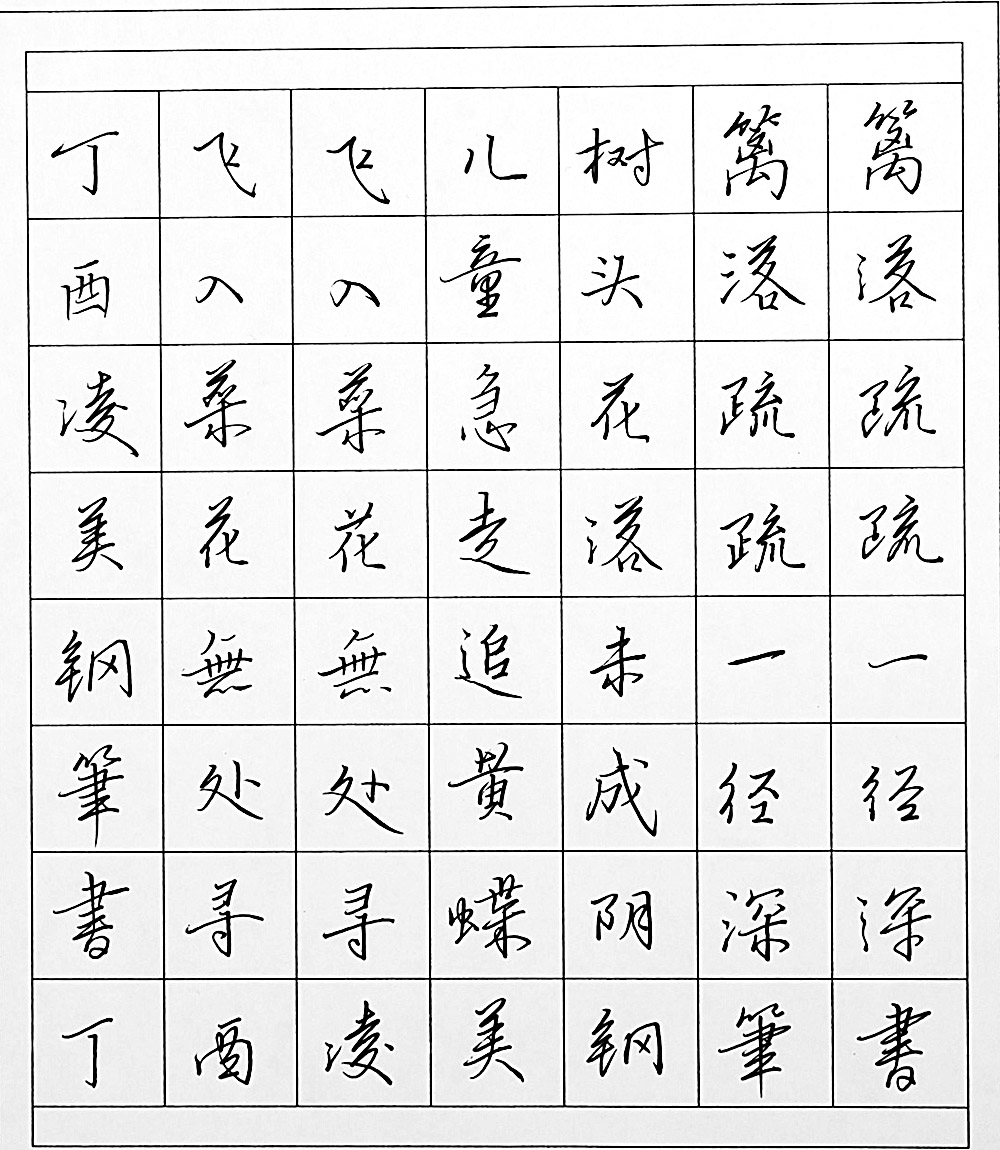 篱落疏疏一径深
篱落疏疏一径深
树头花落未成阴
儿童急走追黄蝶
飞入菜花無处寻
飞入菜花無处寻
丁酉凌美钢筆書
丁酉凌美钢筆書